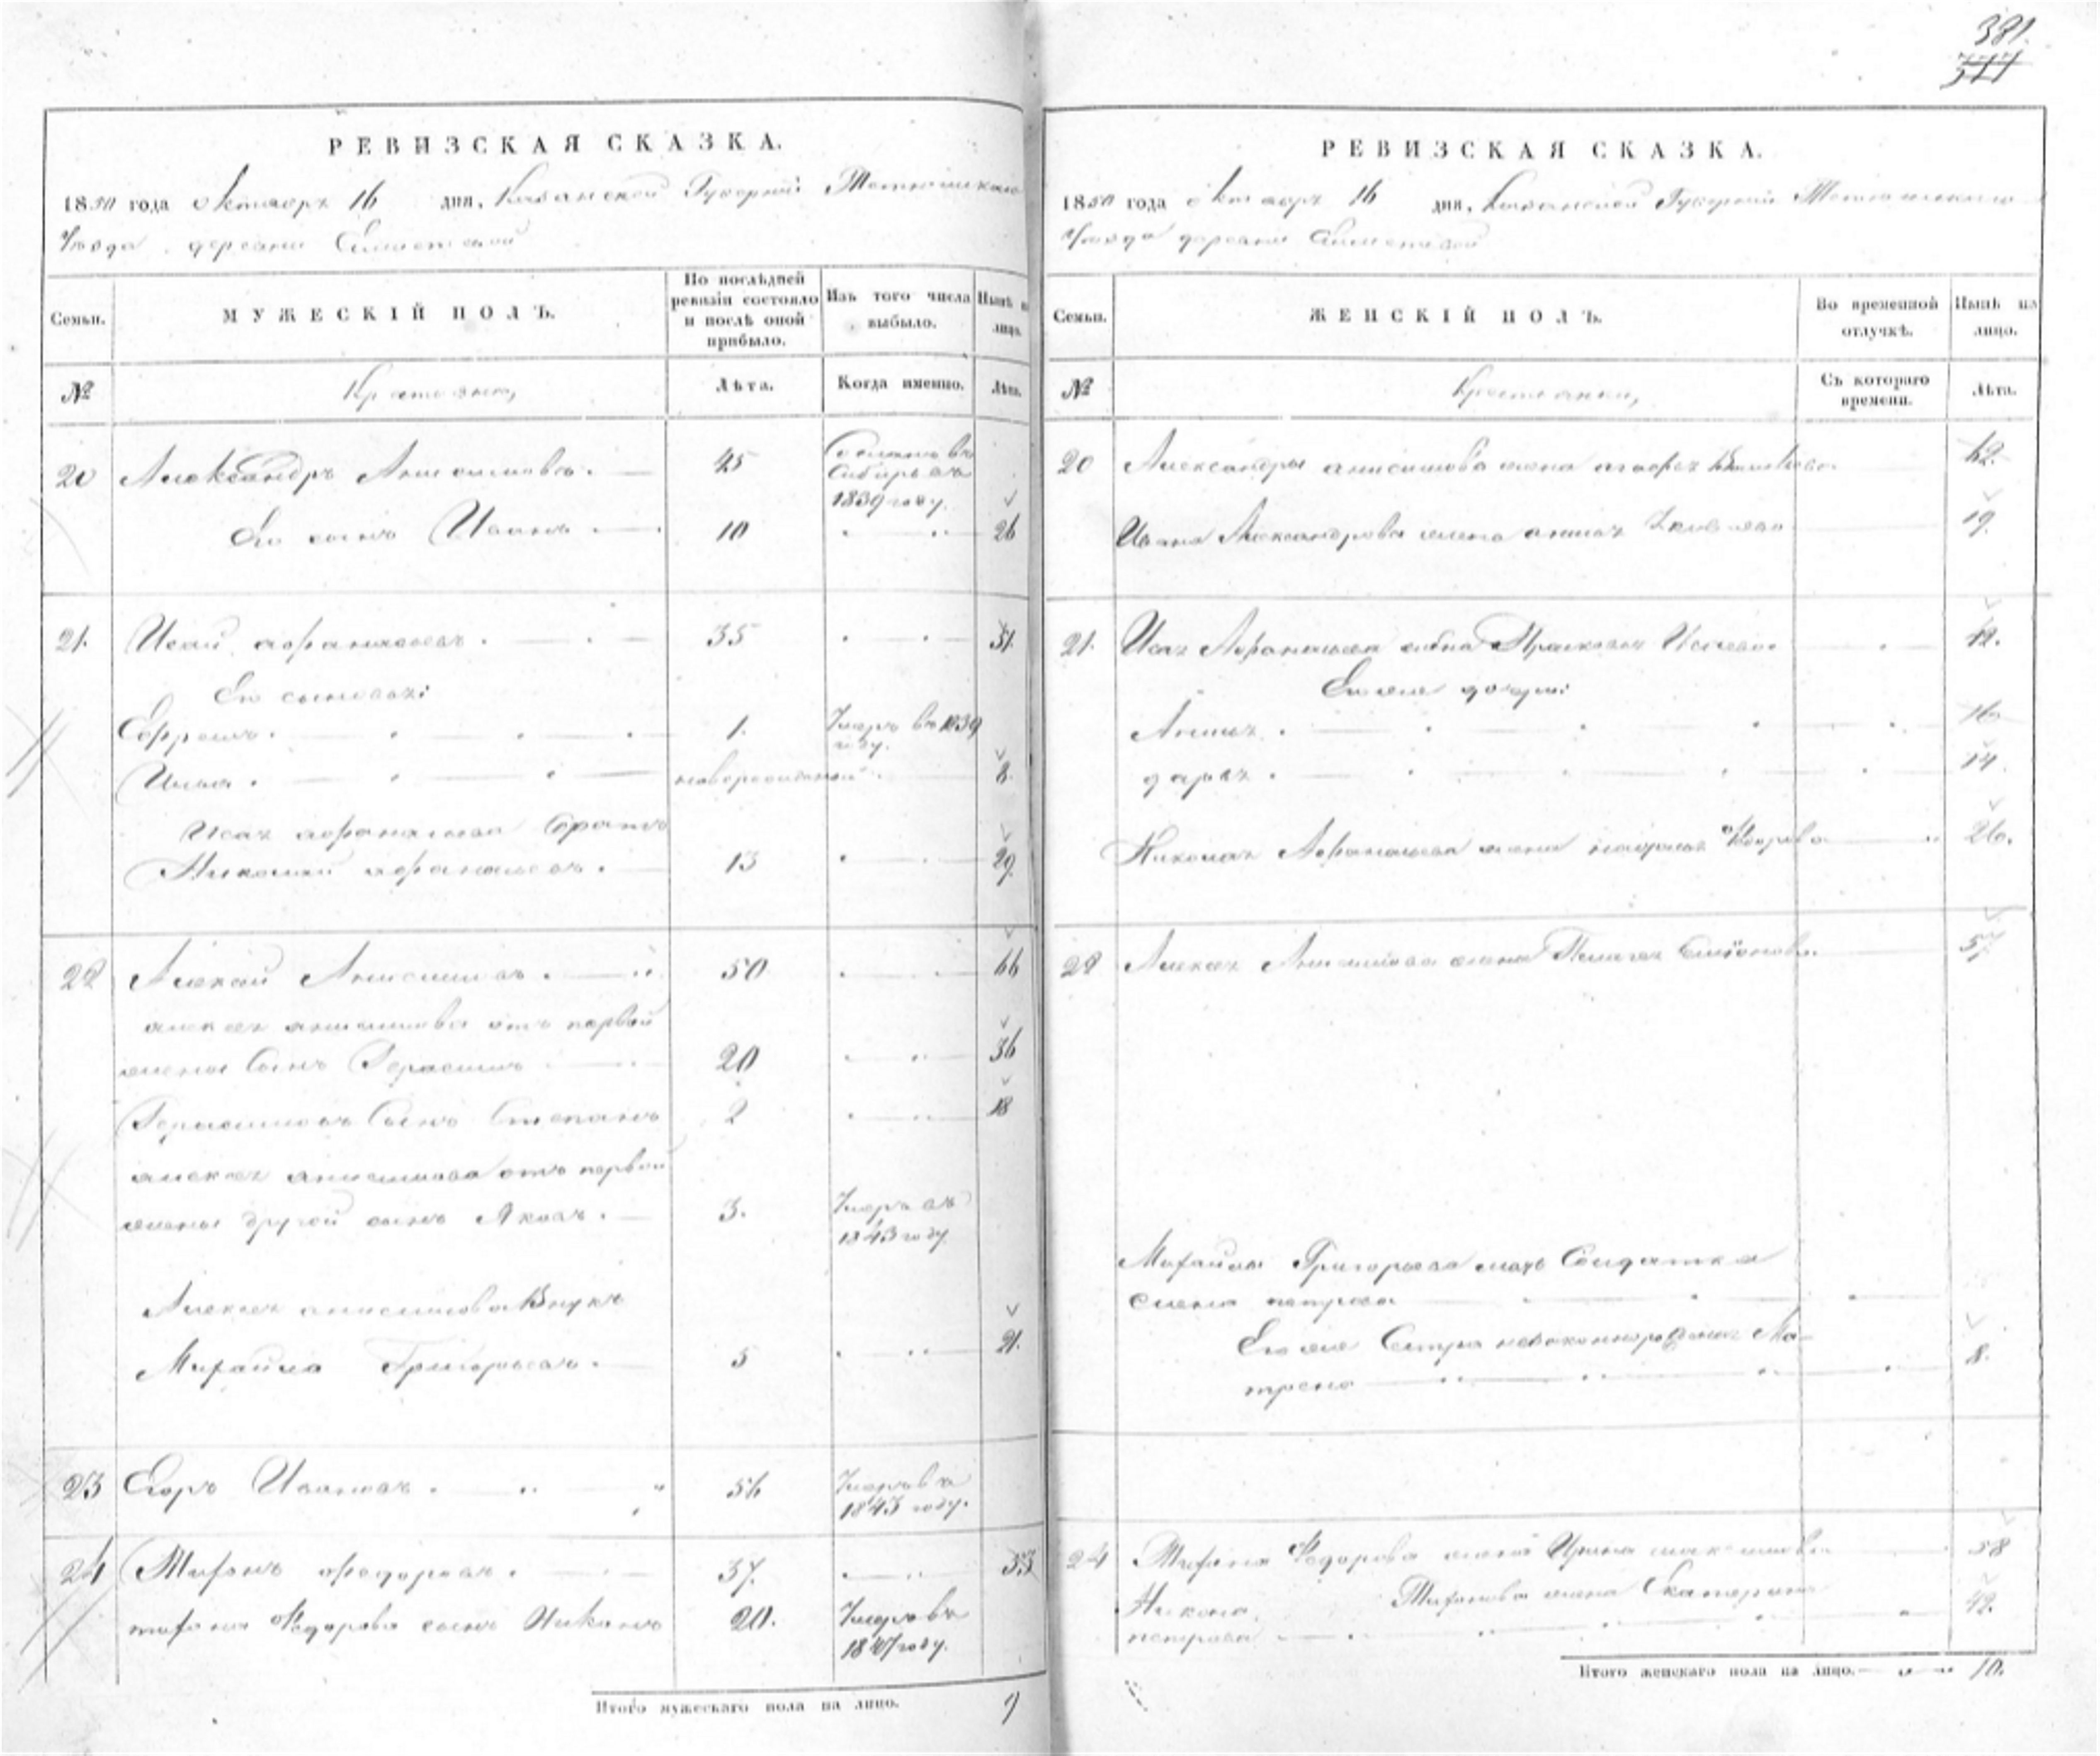 381.
377
РЕВИЗСКАЯ СКАЗКА.
1850 года октября 16 дня, Казанской Губернии Тетюшскаго
Уезда деревни
Семьи.
МУЖЕСКІЙ ПОЛЪ.
По послѣдней ревизіи состояло и послѣ оной прибыло.
Изъ того числа выбыло.
Нынѣ на лицо.
№
Крестьяне,
Лѣта.
Когда именно.
Лѣта.
20 Александръ Анисимовъ. 45 Сосланъ въ Сибирь въ 1839 году.
Его сынъ Иванъ 10 26
21. Исай афанасьевъ. 35 51.
Его сыновья:
Ефремъ. 1. Умеръ въ 1839 году.
Илья. новорожденный 8.
Исая афанасьева братъ
Николай афанасьевъ. 13 29.
22 Алексей Анисимовъ. 50 66
алексея анисимова отъ первой
жены Сынъ Герасимъ 20 36
Герасимовъ Сынъ Степанъ 2 18
алексея анисимова отъ первой
жены другой сынъ Яковъ. 3. Умеръ въ 1843 году
Алексея анисимова Внукъ
Михайла Григорьевъ. 5 21.
23 Егоръ Ивановъ. 56 Умеръ въ 1843 году.
24 Тихонъ федоровъ. 37. 53
тихона Федорова сынъ Никонъ 20. Умеръ въ 1847 году.
Итого мужескаго пола на лицо. 9
РЕВИЗСКАЯ СКАЗКА.
1850 года октября 16 дня, Казанской Губернии Тетюшскаго
Уезда деревни
Семьи.
ЖЕНСКІЙ ПОЛЪ.
Во временной отлучкѣ.
Нынѣ на лицо.
№
Крестьянки,
Съ котораго времени.
Лѣта.
20 Александры анисимова жена 62.
Ивана Александрова жена анна Яковлева 19.
21. Исая Афанасьева жена Прасковья 42.
Его же дочери:
Анна. 16
дарья. 14.
Николая Афанасьева жена Федорова 26.
22 Алексея Анисимова жена 57.
Михайлы Григорьева мать Солдатка
Елена петрова
Его же Сестра незаконнорожденная Ма-
трена 8.
24 Тихона Федорова жена Ирина максимова 58
Никона Тихонова жена Екатерина
петрова 42.
Итого женскаго пола на лицо. 10.